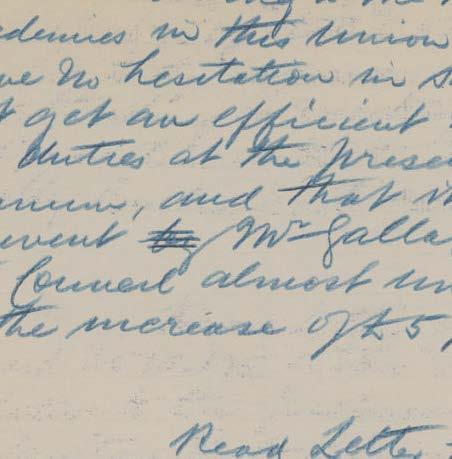 to the
idemies in this Union
ve no hesitation in s
t get an efficient
duties at the presen
nnum, and that it
event by Mr Galla
Council almost un
the increase of £5 p
Read Letter